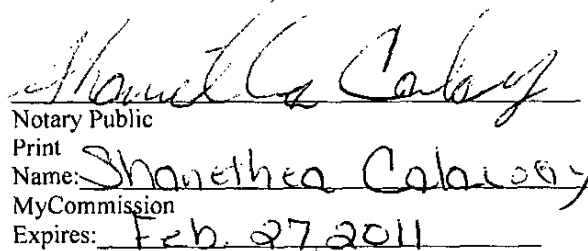 Notary Public
Print
Name: Shanethea Calaway
MyCommission
Expires: Feb. 27 2011